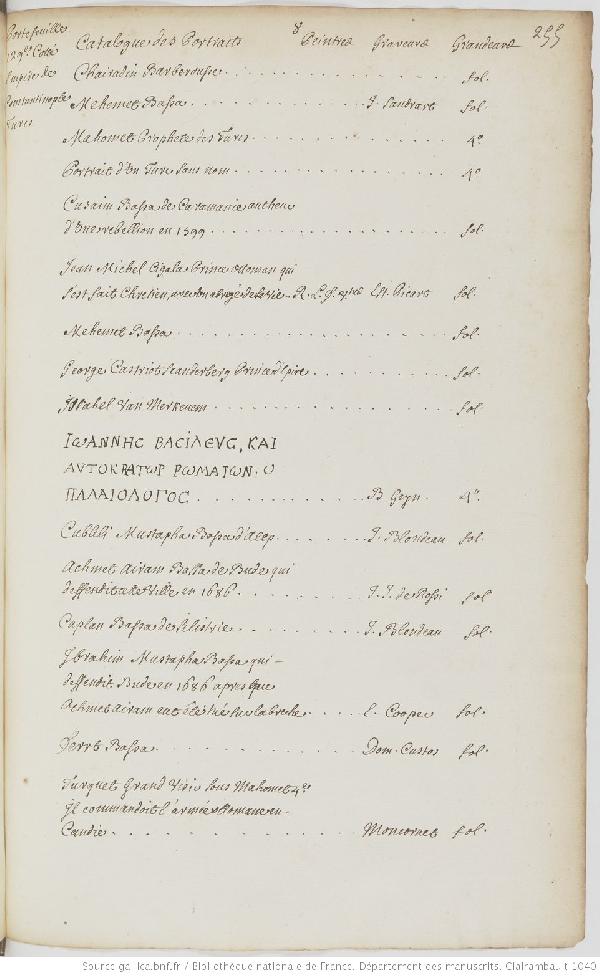 Portefeuille
Empire de
Constantinople
Turcs
Catalogue des Portraits Peintres Graveurs Grandeurs 255
Chairadin Barberousse fol.
Mehemet Bassa J. Sandrart fol.
Mahomet Prophete des Turcs 4º
Portrait d'Un Turc sans nom 4º
Cusaim Bassa de Caramanie autheur
d'Une rebellion en 1599 fol.
Jean Michel Cigala Prince ottoman qui
s'est fait Chretien, avec Un abregé de sa vie Est. Picart fol.
Mehemet Bassa fol.
George Castriot Scanderberg Prince d'Epire fol.
Israhel Van Meckenem fol.
ΙωΑΝΝΗС ΒΑСΙΛΕVС, ΚΑΙ
ΑVΤΟΚΡΑΤωΡ ΡωΜΑΙωΝ. Ο
ΠΑΛΑΙΟΛΟΓΟС B. Geyn. 4º.
Cubbli Mustapha Bassa d'Alep J. Blondeau fol.
Achmet Airam Bassa de Bude qui
deffendit cette Ville en 1686. J. J. de Rossi fol
Caplan Bassa de Silistrie J. Blondeau fol.
Ibrahim Mustapha Bassa qui
deffendit Bude en 1686 apres que
Achmet Airam eut été tué sur la breche E. Cooper fol.
Ferrt Bassa Dom. Custos fol.
Turquet Grand Visir sous Mahomet 4e.
Il commandoit l'armée ottomane en
Candie Moncornet fol.
Source gallica.bnf.fr / Bibliothèque nationale de France. Département des manuscrits. Clairambault 1040